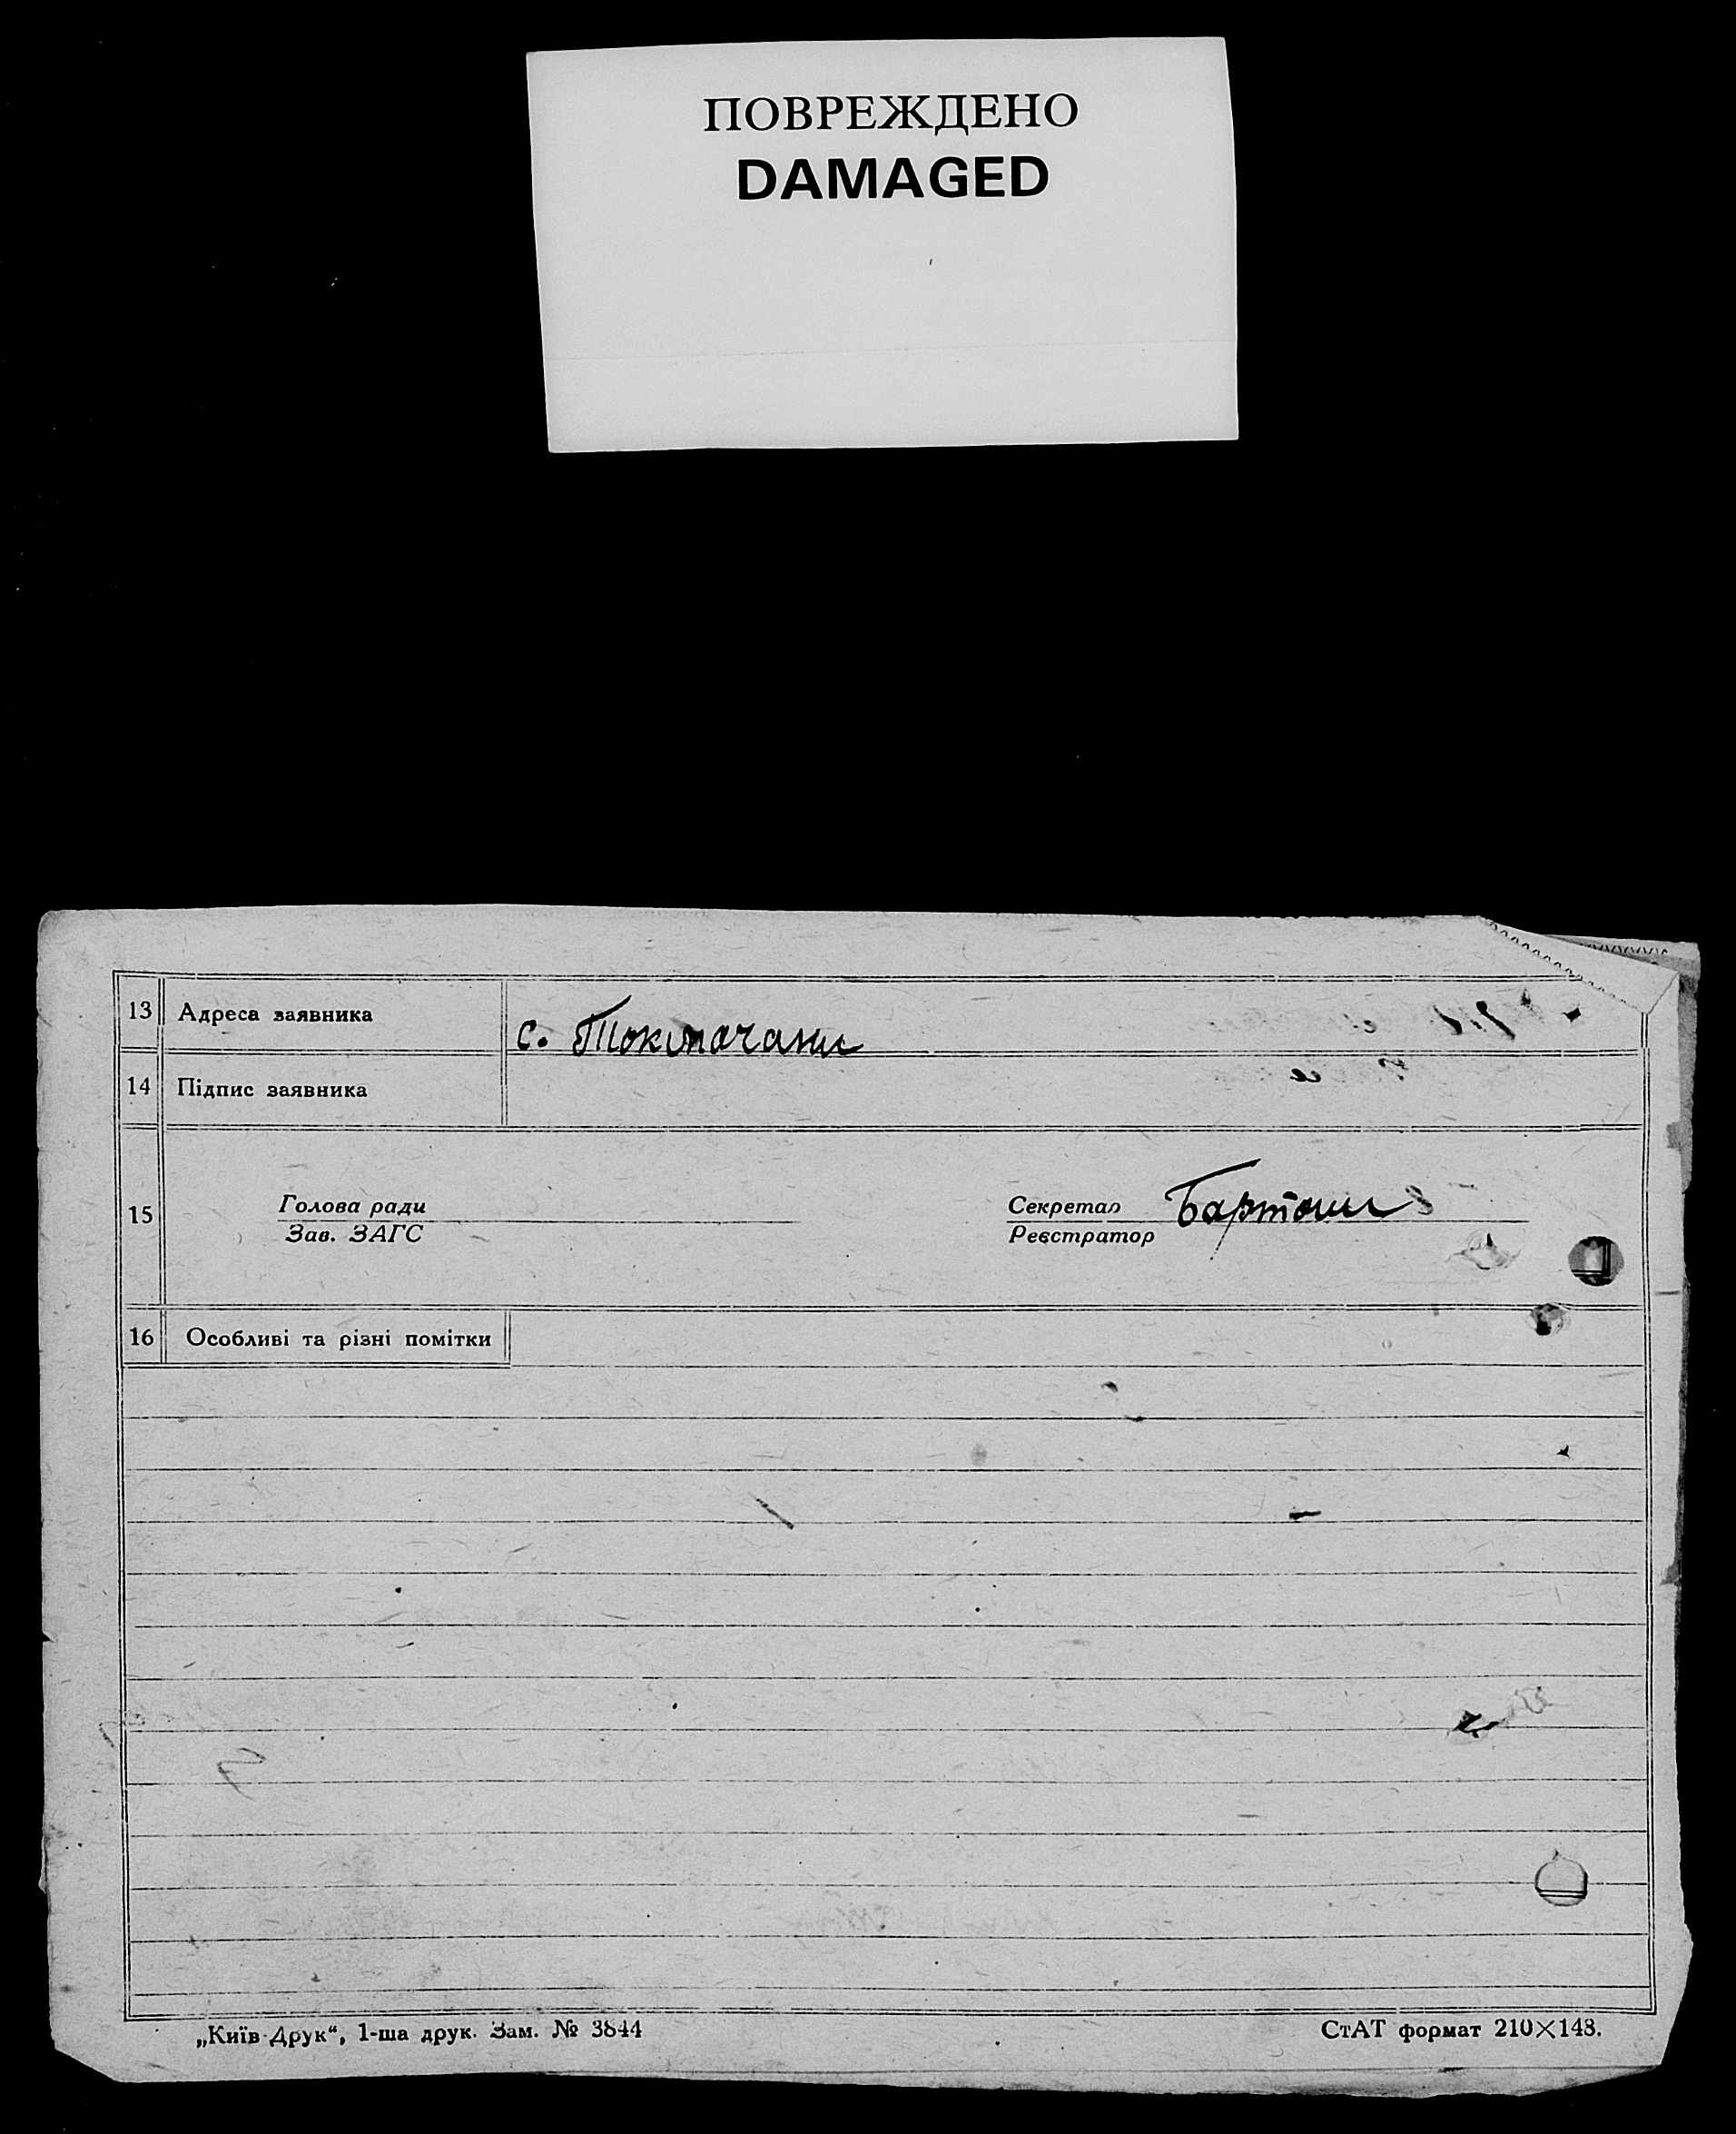 ПОВРЕЖДЕНО
DAMAGED
13 Адреса заявника с. Токмачани
14 Підпис заявника
15 Голова ради Секретар
Зав. ЗАГС Реєстратор
16 Особливі та різні помітки
„Київ-Друк“, 1-ша друк. Зам. № 3844
СтАТ формат 210×148.